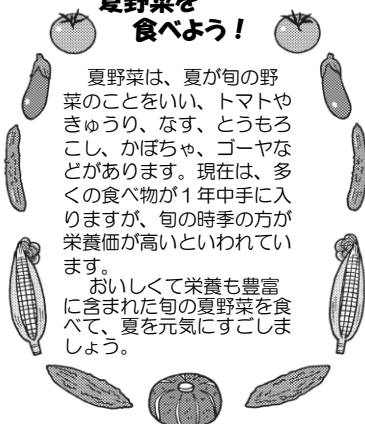 夏野菜を
食べよう！
夏野菜は、夏が旬の野
菜のことをいい、トマトや
きゅうり、なす、とうもろ
こし、かぼちゃ、ゴーヤな
どがあります。現在は、多
くの食べ物が１年中手に入
りますが、旬の時季の方が
栄養価が高いといわれてい
ます。
おいしくて栄養も豊富
に含まれた旬の夏野菜を食
べて、夏を元気にすごしま
しょう。